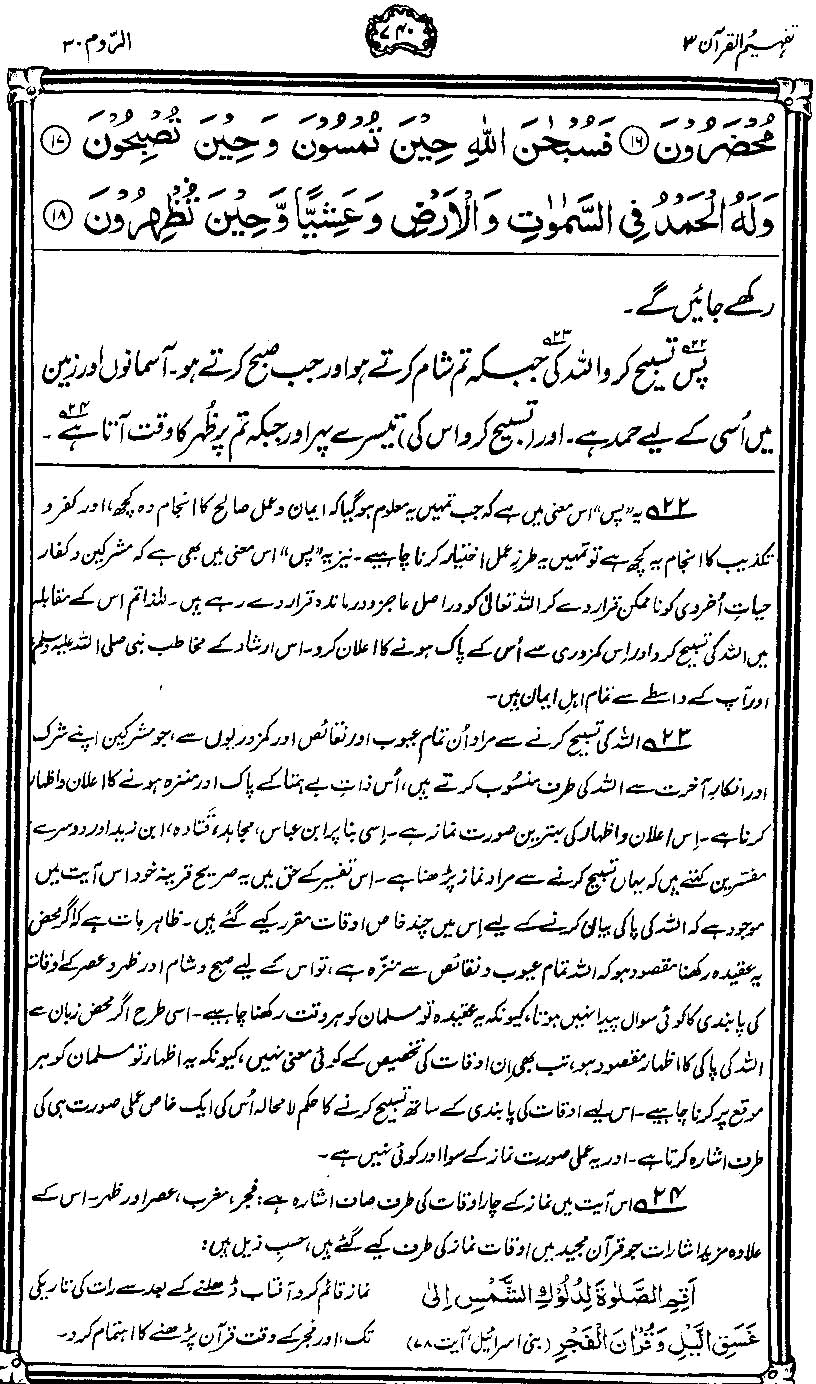 تفہیم القرآن ۳
۷۴۰
الرّوم ۳۰
مُحْضَرُوْنَ ۝۱۶ فَسُبْحٰنَ اللّٰهِ حِيْنَ تُمْسُوْنَ وَ حِيْنَ تُصْبِحُوْنَ ۝۱۷
وَلَهُ الْحَمْدُ فِي السَّمٰوٰتِ وَالْاَرْضِ وَعَشِيًّا وَّحِيْنَ تُظْهِرُوْنَ ۝۱۸
رکھے جائیں گے۔
پس۲۲ تسبیح کرو اللہ کی۲۳ جبکہ تم شام کرتے ہو اور جب صبح کرتے ہو۔ آسمانوں اور زمین
میں اُسی کے لیے حمد ہے۔ اور (تسبیح کرو اس کی) تیسرے پہر اور جبکہ تم پر ظُہر کا وقت آتا ہے۲۴۔
۲۲ یہ ”پس“ اس معنی میں ہے کہ جب تمہیں یہ معلوم ہوگیا کہ ایمان و عمل صالح کا انجام وہ کچھ، اور کفر و
تکذیب کا انجام یہ کچھ ہے تو تمہیں یہ طرزِ عمل اختیار کرنا چاہیے۔ نیز یہ ”پس“ اس معنی میں بھی ہے کہ مشرکین و کفار
حیاتِ اُخروی کو ناممکن قرار دے کر اللہ تعالیٰ کو دراصل عاجز و درماندہ قرار دے رہے ہیں۔ لہٰذا تم اس کے مقابلہ
میں اللہ کی تسبیح کرو اور اِس کمزوری سے اُس کے پاک ہونے کا اعلان کرو۔ اس ارشاد کے مخاطب نبی صلی اللہ علیہ وسلم
اور آپ کے واسطے سے تمام اہلِ ایمان ہیں۔
۲۳ اللہ کی تسبیح کرنے سے مراد اُن تمام عیوب اور نقائص اور کمزوریوں سے، جو مشرکین اپنے شرک
اور انکارِ آخرت سے اللہ کی طرف منسُوب کرتے ہیں، اُس ذاتِ بے ہمتا کے پاک اور منزہ ہونے کا اعلان و اظہار
کرنا ہے۔ اِس اعلان و اظہار کی بہترین صورت نماز ہے۔ اِسی بنا پر ابن عباس، مجاہد، قَتادہ، ابن زید اور دوسرے
مفسّرین کہتے ہیں کہ یہاں تسبیح کرنے سے مراد نماز پڑھنا ہے۔ اس تفسیر کے حق میں یہ صریح قرینہ خود اس آیت میں
موجود ہے کہ اللہ کی پاکی بیان کرنے کے لیے اِس میں چند خاص اوقات مقرر کیے گئے ہیں۔ ظاہر بات ہے کہ اگر محض
یہ عقیدہ رکھنا مقصود ہو کہ اللہ تمام عیوب و نقائص سے منزّہ ہے، تو اس کے لیے صبح و شام اور ظہر و عصر کے اوقات
کی پابندی کا کوئی سوال پیدا نہیں ہوتا، کیونکہ یہ عقیدہ تو مسلمان کو ہر وقت رکھنا چاہیے۔ اسی طرح اگر محض زبان سے
اللہ کی پاکی کا اظہار مقصود ہو، تب بھی اِن اوقات کی تخصیص کے کوئی معنی نہیں، کیونکہ یہ اظہار تو مسلمان کو ہر
موقع پر کرنا چاہیے۔ اس لیے اوقات کی پابندی کے ساتھ تسبیح کرنے کا حکم لامحالہ اُس کی ایک خاص عملی صورت ہی کی
طرف اشارہ کرتا ہے۔ اور یہ عملی صورت نماز کے سوا اور کوئی نہیں ہے۔
۲۴ اس آیت میں نماز کے چار اوقات کی طرف صاف اشارہ ہے: فجر، مغرب، عصر اور ظہر۔ اس کے
علاوہ مزید اشارات جو قرآن مجید میں اوقات نماز کی طرف کیے گئے ہیں، حسبِ ذیل ہیں:
اَقِمِ الصَّلٰوةَ لِدُلُوْكِ الشَّمْسِ اِلٰى
غَسَقِ الَّيْلِ وَقُرْاٰنَ الْفَجْرِ (بنی اسرائیل، آیت ۷۸)
نماز قائم کرو آفتاب ڈھلنے کے بعد سے رات کی تاریکی
تک، اور فجر کے وقت قرآن پڑھنے کا اہتمام کرو۔